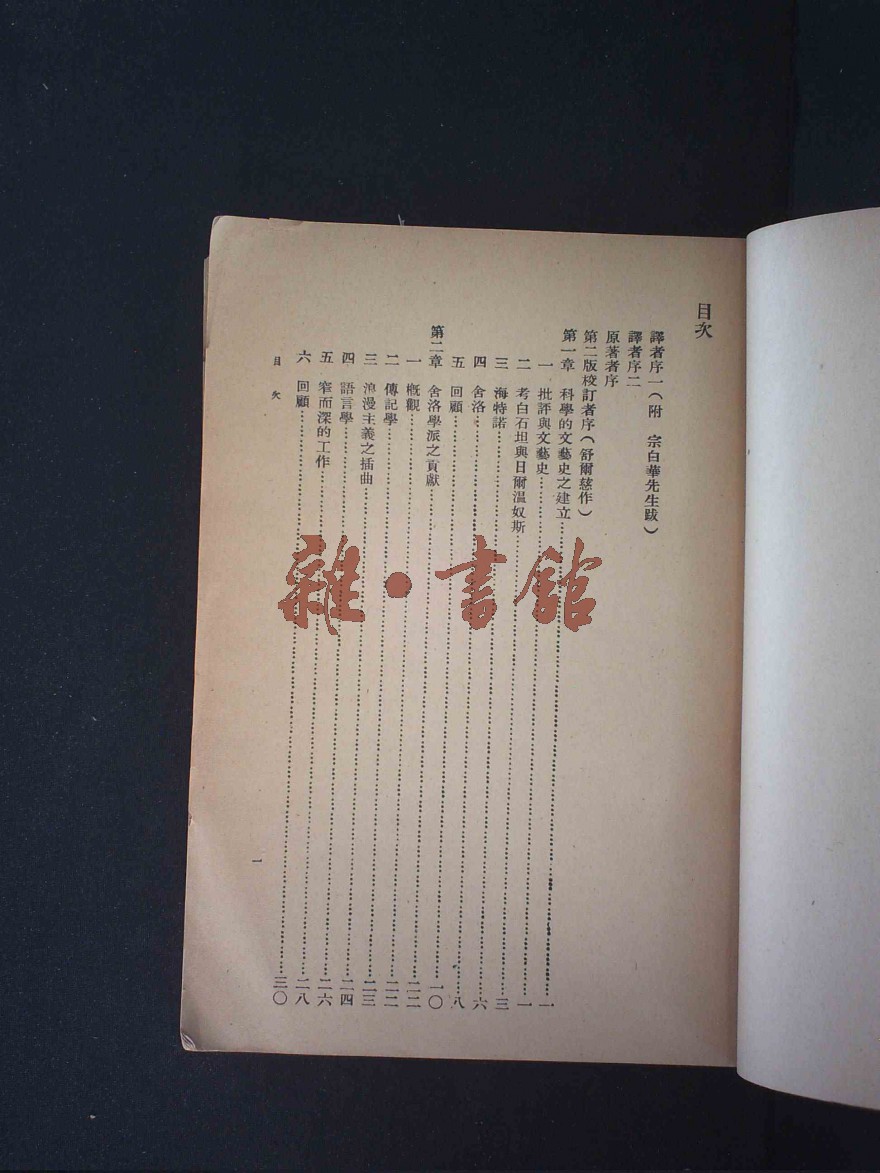 目次
譯者序一(附 宗白華先生跋)
譯者序二
原著者序
第二版校訂者序(舒爾慈作)
第一章 科學的文藝史之建立……一
一 批評與文藝史……一
二 考白石坦與日爾溫奴斯……三
三 海特諾……六
四 舍洛……八
五 回顧……一〇
第二章 舍洛學派之貢獻……二二
一 概觀……二二
二 傳記學……二三
三 浪漫主義之插曲……二四
四 語言學……二六
五 窄而深的工作……二八
六 回顧……三〇
目次
一
雜·書館